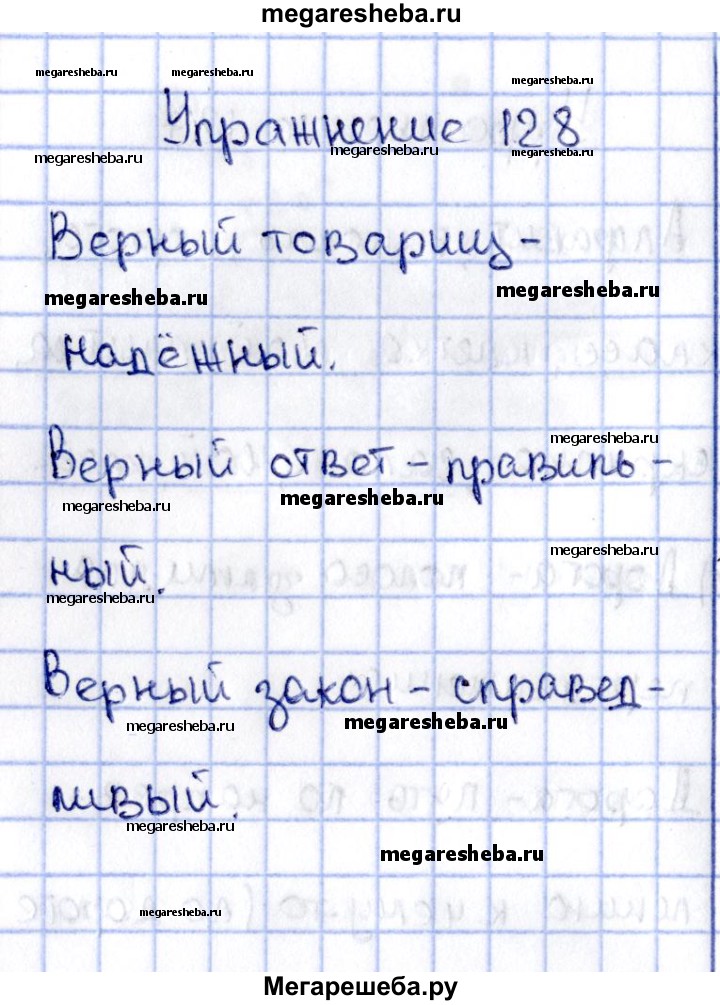 megaresheba.ru
megaresheba.ru megaresheba.ru megaresheba.ru
Упражнение 128
megaresheba.ru megaresheba.ru megaresheba.ru
Верный товарищ -
megaresheba.ru megaresheba.ru
надёжный.
megaresheba.ru
Верный ответ - правиль -
megaresheba.ru megaresheba.ru
megaresheba.ru
ный.
megaresheba.ru
Верный закон - справед -
megaresheba.ru megaresheba.ru
ливый.
megaresheba.ru
megaresheba.ru
megaresheba.ru
Мегарешеба.ру